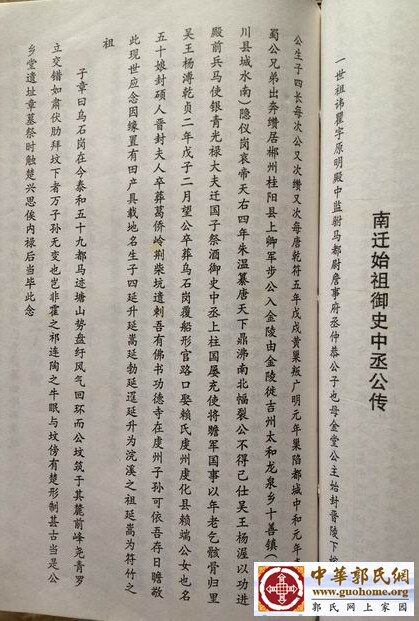 南迁始祖御史中丞公传
一世祖讳瞿字原明殿中监驸马都尉詹事府丞仲恭公子也母金堂公主始封晋陵下
公生子四长每次公又次缵又次每唐乾符五年戊戌黄巢叛广明元年巢陷都城中和元年
蜀公兄弟出奔缵居郴州桂阳县上卿军步公入金陵由金陵徙吉州太和龙泉乡十善镇（
川县城水南）隐仪岗哀帝天右四年朱温纂唐天下鼎沸南北幅裂公不得己仕吴王杨渥以功进
殿前兵马使银青光禄大夫迁国子祭酒御史中丞上柱国屡充使将赡军国事以年老乞骸骨归里
吴王杨溥乾贞二年戊子二月望公卒葬乌石岗覆船形官路口娶赖氏虔州虔化县赖端公女也名
五十娘封硕人晋封夫人卒葬葛侨岭荆柴坑遗刺吾有佛书功德寺在虔州子孙可依吾存日瞻敬
此现世应念因缘置有田产具载地名生子四延升延嵩延勃延暹延升为浣溪之祖延嵩为符竹之
祖
子章曰乌石岗在今泰和五十九都马迹塘山势盘纡风气回环而公坟筑于其麓前峰尧青罗
立交错如肃伏肋拜坟下者万子孙无变也岂非霍之祁连陶之牛眠与坟傍有楚形制甚古当是公
乡堂遗址章墓祭时触楚兴思俟内禄后当毕此念
中華郭氏網
www.guohome.org
郭氏网上家园